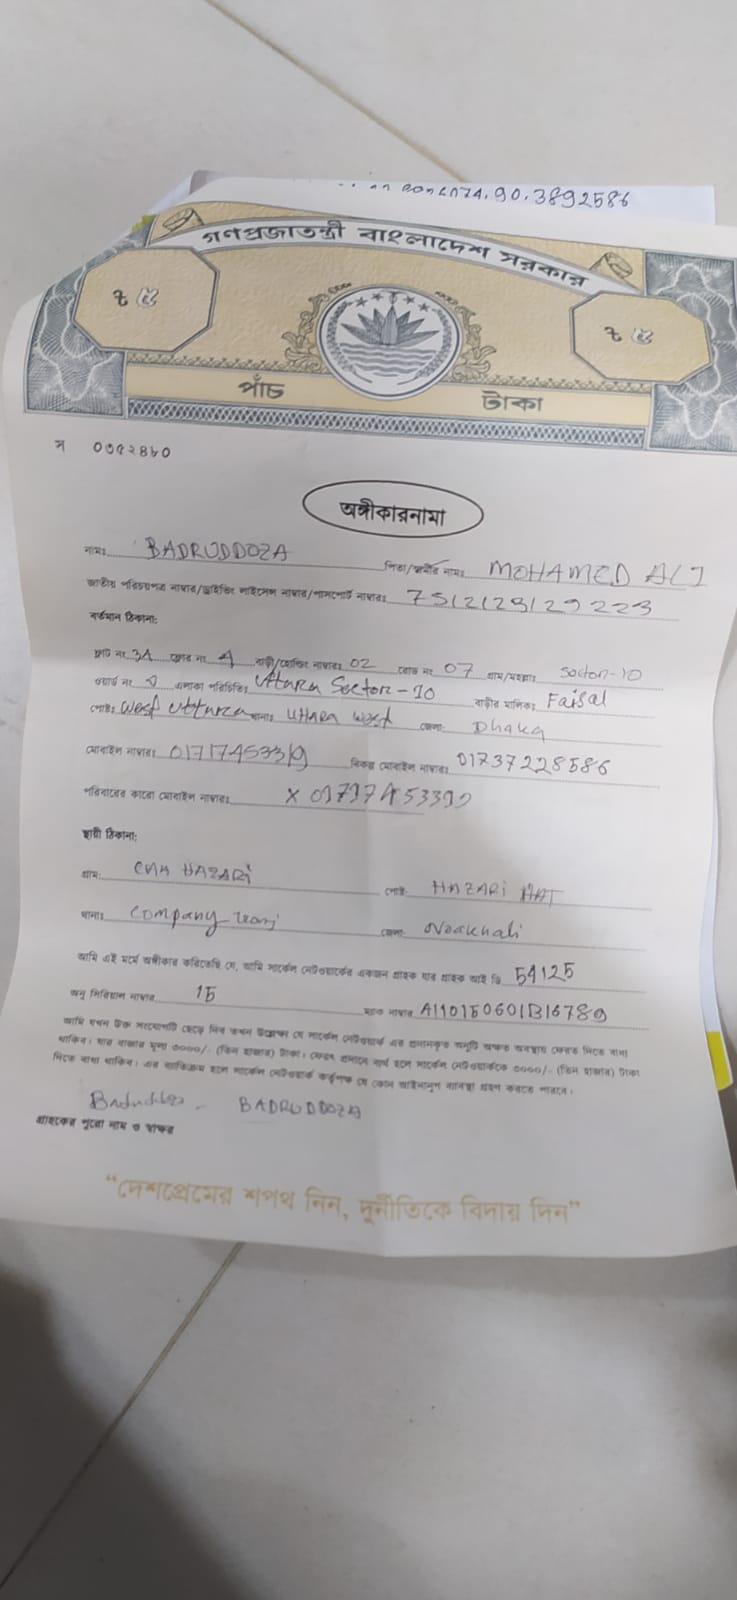 90.3892586
গণপ্রজাতন্ত্রী বাংলাদেশ সরকার
৳ ৫ ৳ ৫
পাঁচ টাকা
০৩৫২৪৮০
অঙ্গীকারনামা
নামঃ BADRUDDOZA পিতা/স্বামীর নামঃ MOHAMED ALI
জাতীয় পরিচয়পত্র নাম্বার/ড্রাইভিং লাইসেন্স নাম্বার/পাসপোর্ট নাম্বারঃ 7512123129223
বর্তমান ঠিকানা:
ফ্ল্যাট নং 3A ফ্লোর নং 4 বাড়ী/হোল্ডিং নাম্বারঃ 02 রোড নং 07 গ্রাম/মহল্লাঃ Sector-10
ওয়ার্ড নং এলাকা পরিচিতিঃ Uttara Sector-10 বাড়ীর মালিকঃ Faisal
পোষ্টঃ West Uttara থানাঃ Uttara West জেলা: Dhaka
মোবাইল নাম্বারঃ বিকল্প মোবাইল নাম্বারঃ 01737228586
পরিবারের কারো মোবাইল নাম্বারঃ
স্থায়ী ঠিকানা:
গ্রাম: HAZARI পোষ্ট: HAZARI HAT
থানাঃ Company জেলা: Noakhali
আমি এই মর্মে অঙ্গীকার করিতেছি যে, আমি সার্কেল নেটওয়ার্কের একজন গ্রাহক যার গ্রাহক আই ডি 54125
অনু সিরিয়াল নাম্বার 15 ম্যাক নাম্বার A110150601B16789
আমি যখন উক্ত সংযোগটি ছেড়ে দিব তখন উল্লেখ্য যে সার্কেল নেটওয়ার্ক এর প্রদানকৃত অনুটি অক্ষত অবস্থায় ফেরত দিতে বাধ্য
থাকিব। যার বাজার মূল্য ৩০০০/- (তিন হাজার) টাকা। ফেরৎ প্রদানে ব্যর্থ হলে সার্কেল নেটওয়ার্ককে ৩০০০/- (তিন হাজার) টাকা
দিতে বাধ্য থাকিব। এর ব্যতিক্রম হলে সার্কেল নেটওয়ার্ক কর্তৃপক্ষ যে কোন আইনানুগ ব্যবস্থা গ্রহণ করতে পারবে।
BADRUDDOZA
গ্রাহকের পুরো নাম ও স্বাক্ষর
"দেশপ্রেমের শপথ নিন, দুর্নীতিকে বিদায় দিন"